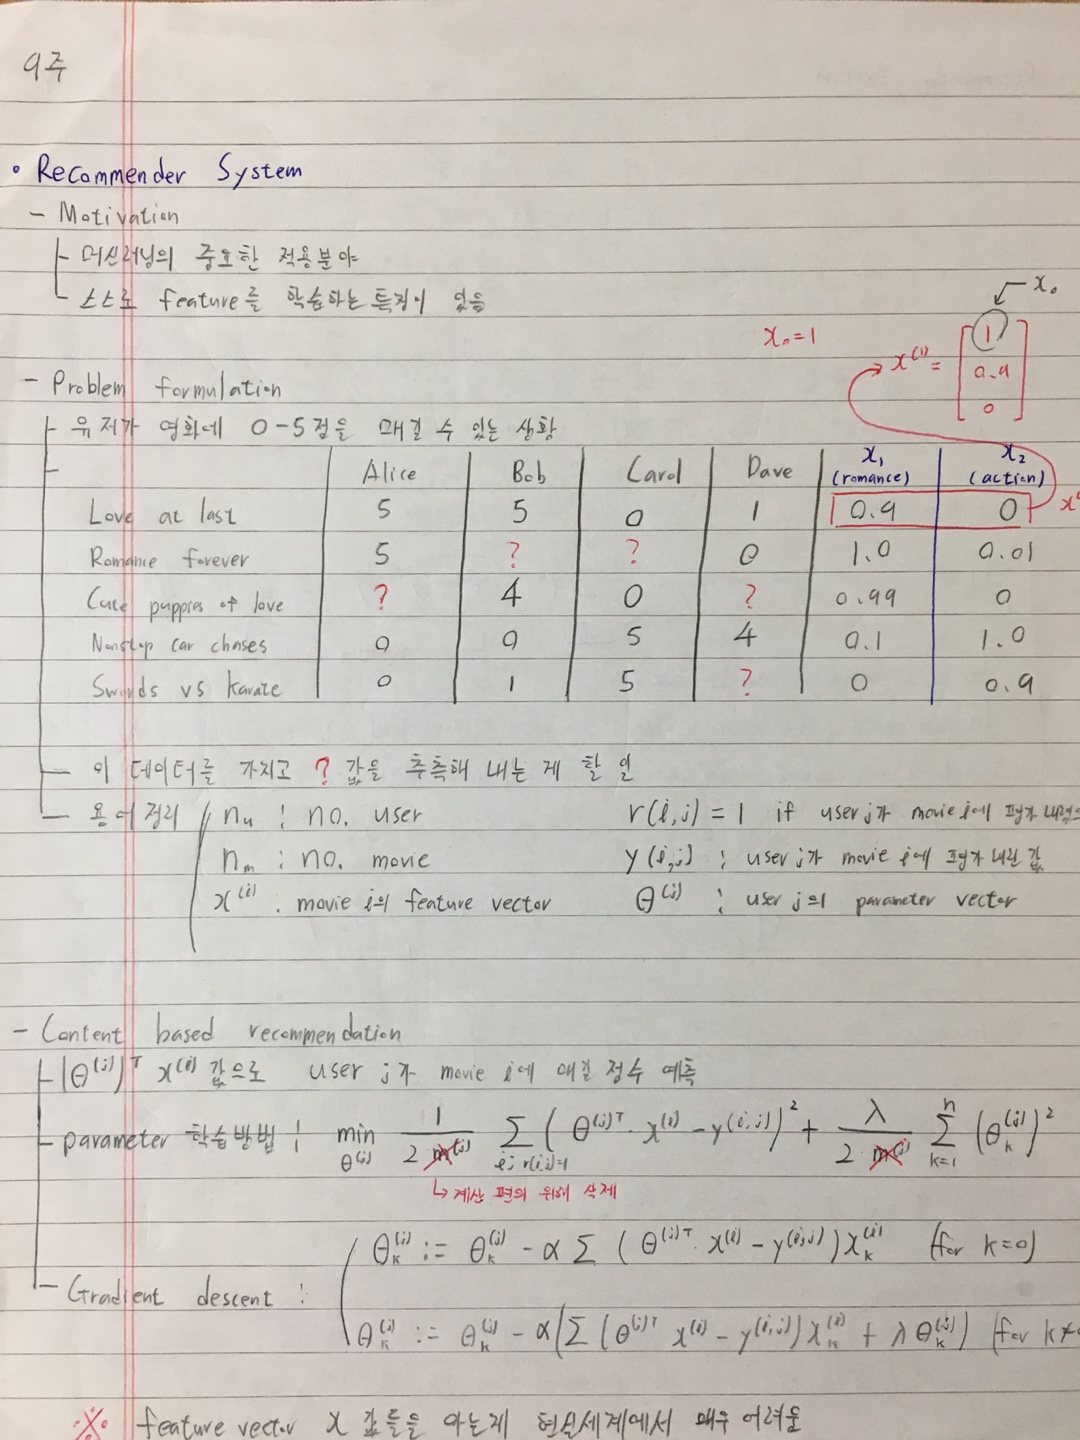 9주
• Recommender System
- Motivation
- 머신러닝의 중요한 적용분야
- 스스로 feature를 학습하는 특징이 있음
x₀
x₀=1
x⁽¹⁾ = [1 0.9 0]
- Problem formulation
- 유저가 영화에 0-5점을 매길 수 있는 상황
Alice Bob Carol Dave x₁ (romance) x₂ (action)
Love at last 5 5 0 1 0.9 0
Romance forever 5 ? ? 0 1.0 0.01
Cute puppies of love ? 4 0 ? 0.99 0
Nonstop car chases 0 0 5 4 0.1 1.0
Swords vs karate 0 1 5 ? 0 0.9
- 이 데이터를 가지고 ? 값을 추측해 내는 게 할 일
- 용어정리 nᵤ : no. user r(i,j) = 1 if user j가 movie i에 평가
nₘ : no. movie y(i,j) : user j가 movie i에 평가 내린 값
x⁽ⁱ⁾ : movie i의 feature vector θ⁽ʲ⁾ : user j의 parameter vector
- Content based recommendation
- (θ⁽ʲ⁾)ᵀ x⁽ⁱ⁾ 값으로 user j가 movie i에 매길 점수 예측
- parameter 학습방법 : min θ⁽ʲ⁾ 1/2m⁽ʲ⁾ Σ i; r(i,j)=1 (θ⁽ʲ⁾ᵀ · x⁽ⁱ⁾ - y⁽ⁱ,ʲ⁾)² + λ/2m⁽ʲ⁾ Σ k=1 n (θₖ⁽ʲ⁾)²
↳ 계산 편의 위해 삭제
θₖ⁽ʲ⁾ := θₖ⁽ʲ⁾ - α Σ (θ⁽ʲ⁾ᵀ · x⁽ⁱ⁾ - y⁽ⁱ,ʲ⁾) xₖ⁽ⁱ⁾ (for k=0)
- Gradient descent :
θₖ⁽ʲ⁾ := θₖ⁽ʲ⁾ - α(Σ (θ⁽ʲ⁾ᵀ x⁽ⁱ⁾ - y⁽ⁱ,ʲ⁾) xₖ⁽ⁱ⁾ + λ θₖ⁽ʲ⁾) (for k≠
※ feature vector x 값들을 아는게 현실세계에서 매우 어려움